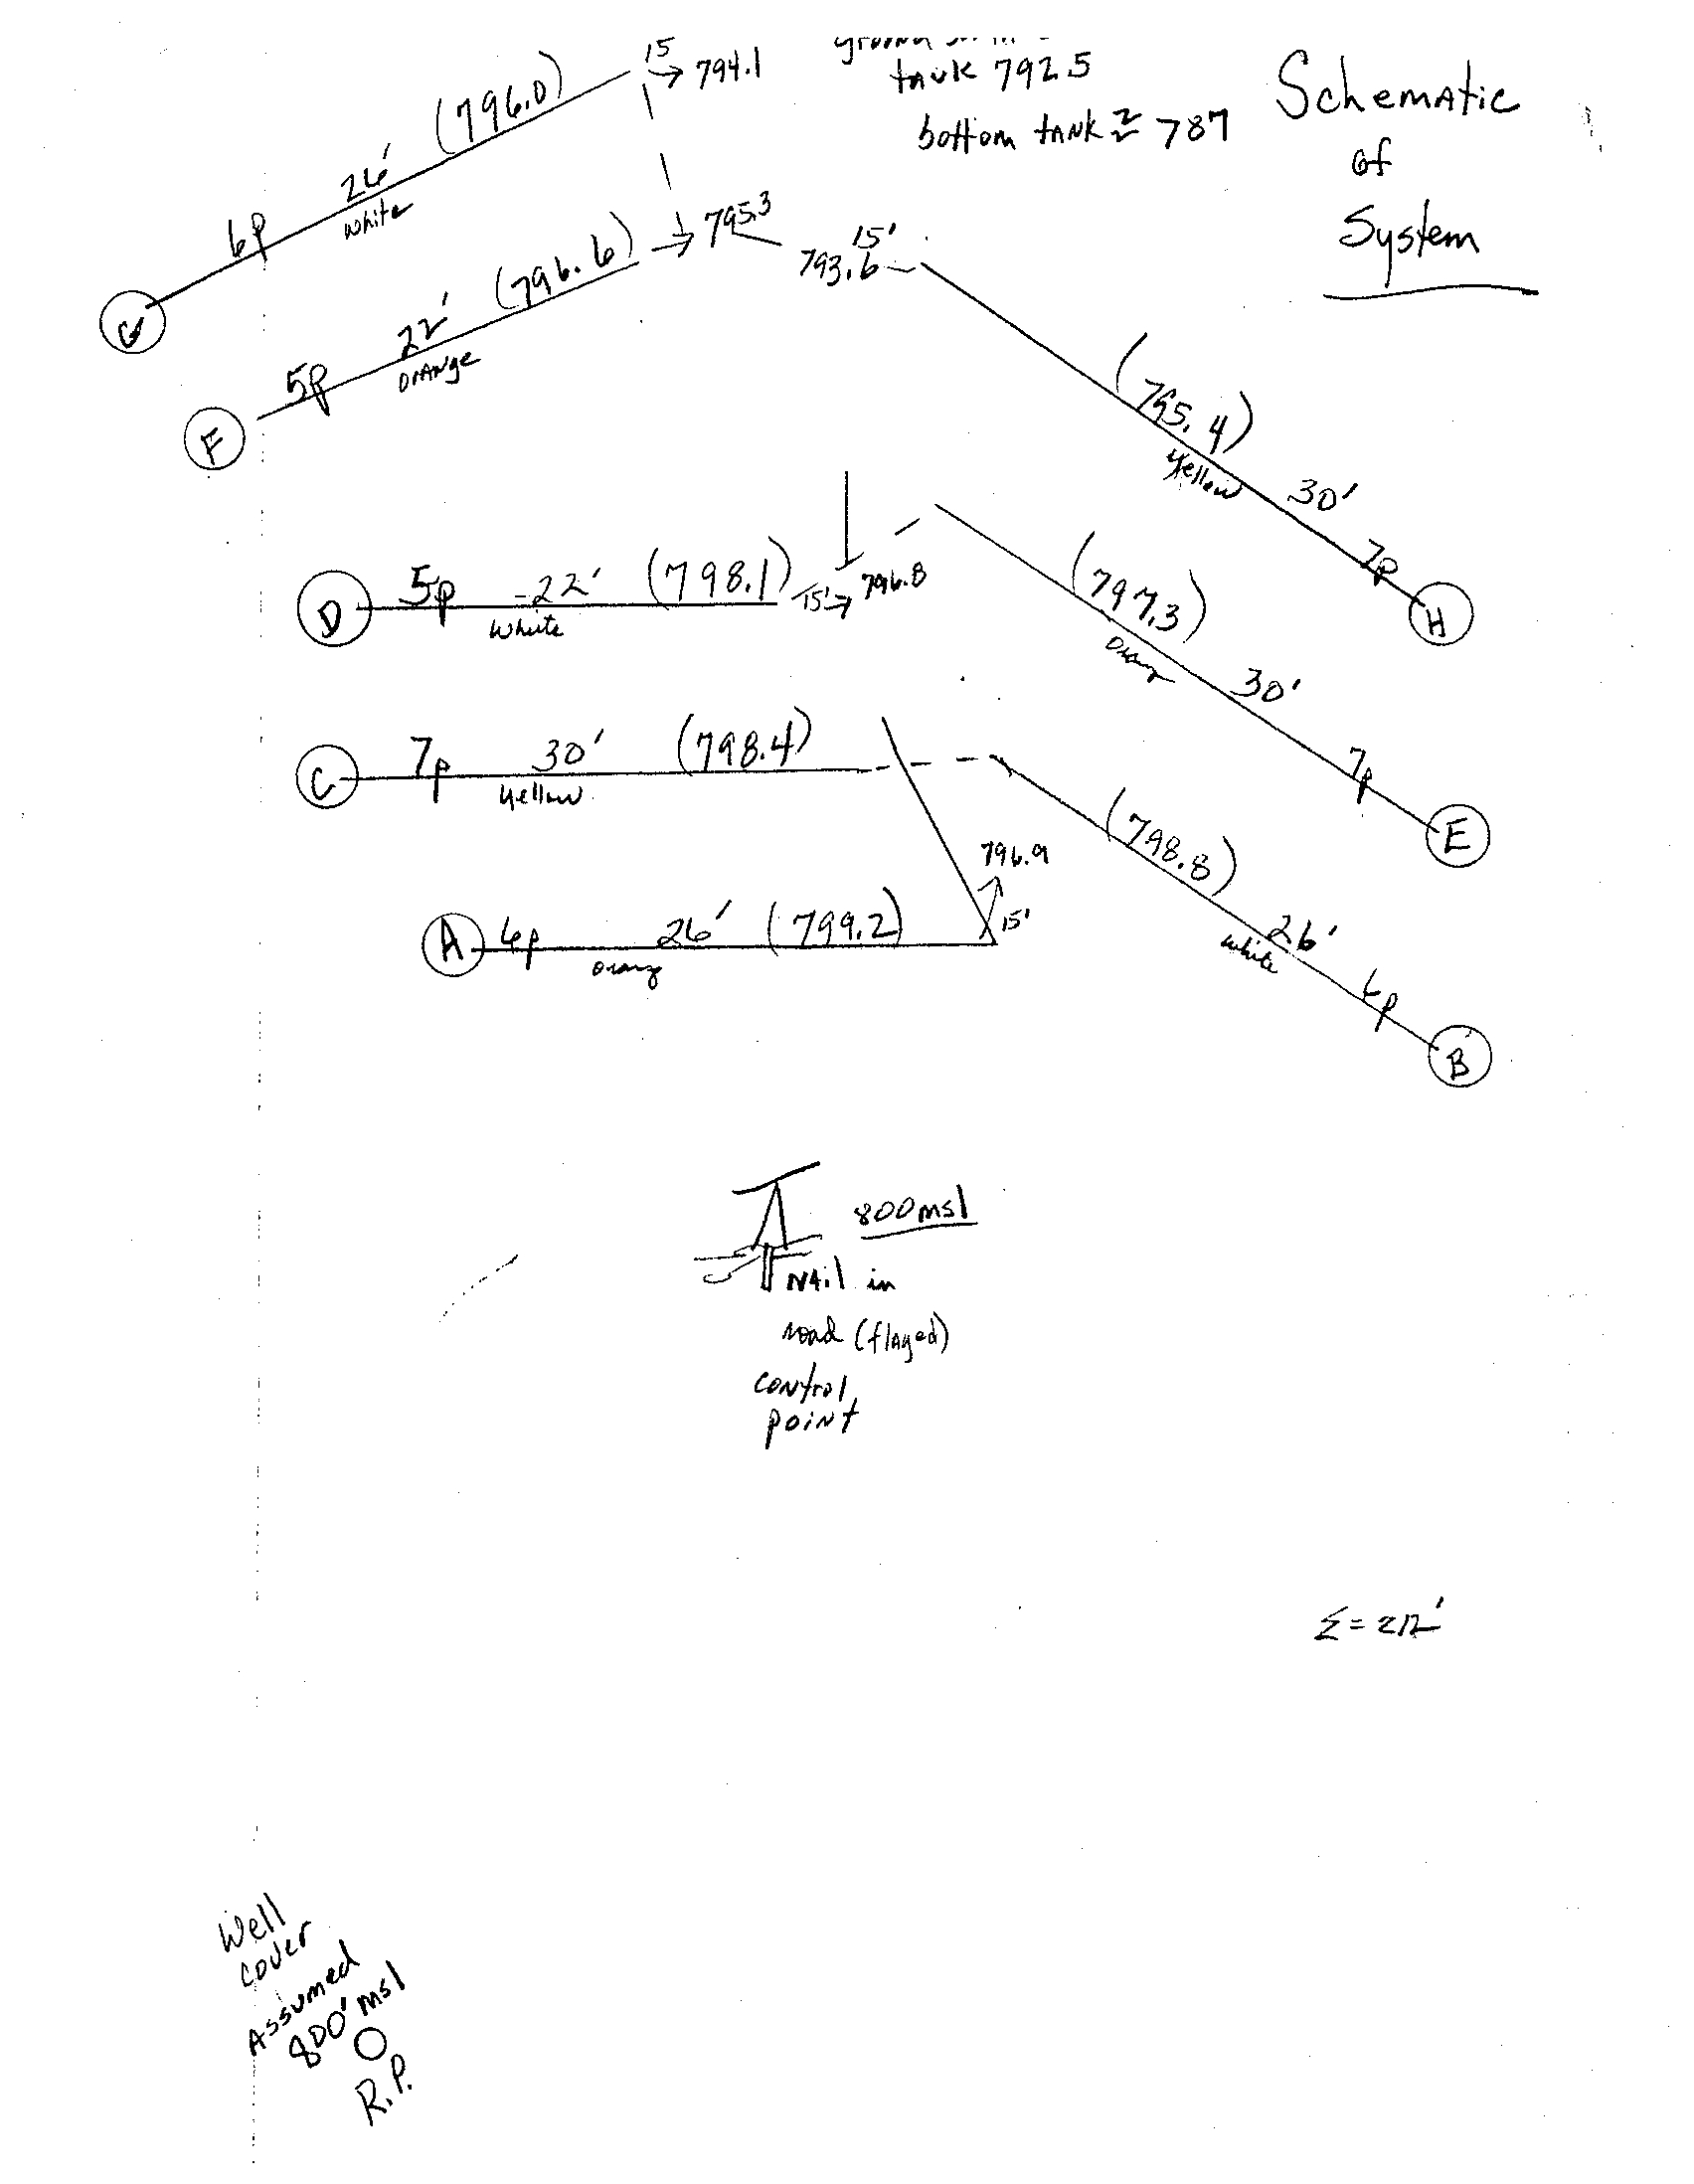 15
794.1
tank 792.5
bottom tank ≈ 787
Schematic
of
System
(796.0)
26'
White
6p
G
795.3
15'
793.6
(796.6)
22'
Orange
5p
F
(795.4)
Yellow
30'
7p
H
D
5p
22'
White
(798.1)
15'
796.8
(797.3)
30'
7p
E
C
7p
30'
Yellow
(798.4)
796.9
15'
(798.8)
26'
White
6p
B
A
6p
26'
(799.2)
800 msl
Nail in
road (flaged)
control
point
Well
cover
Assumed
800' msl
R.P.